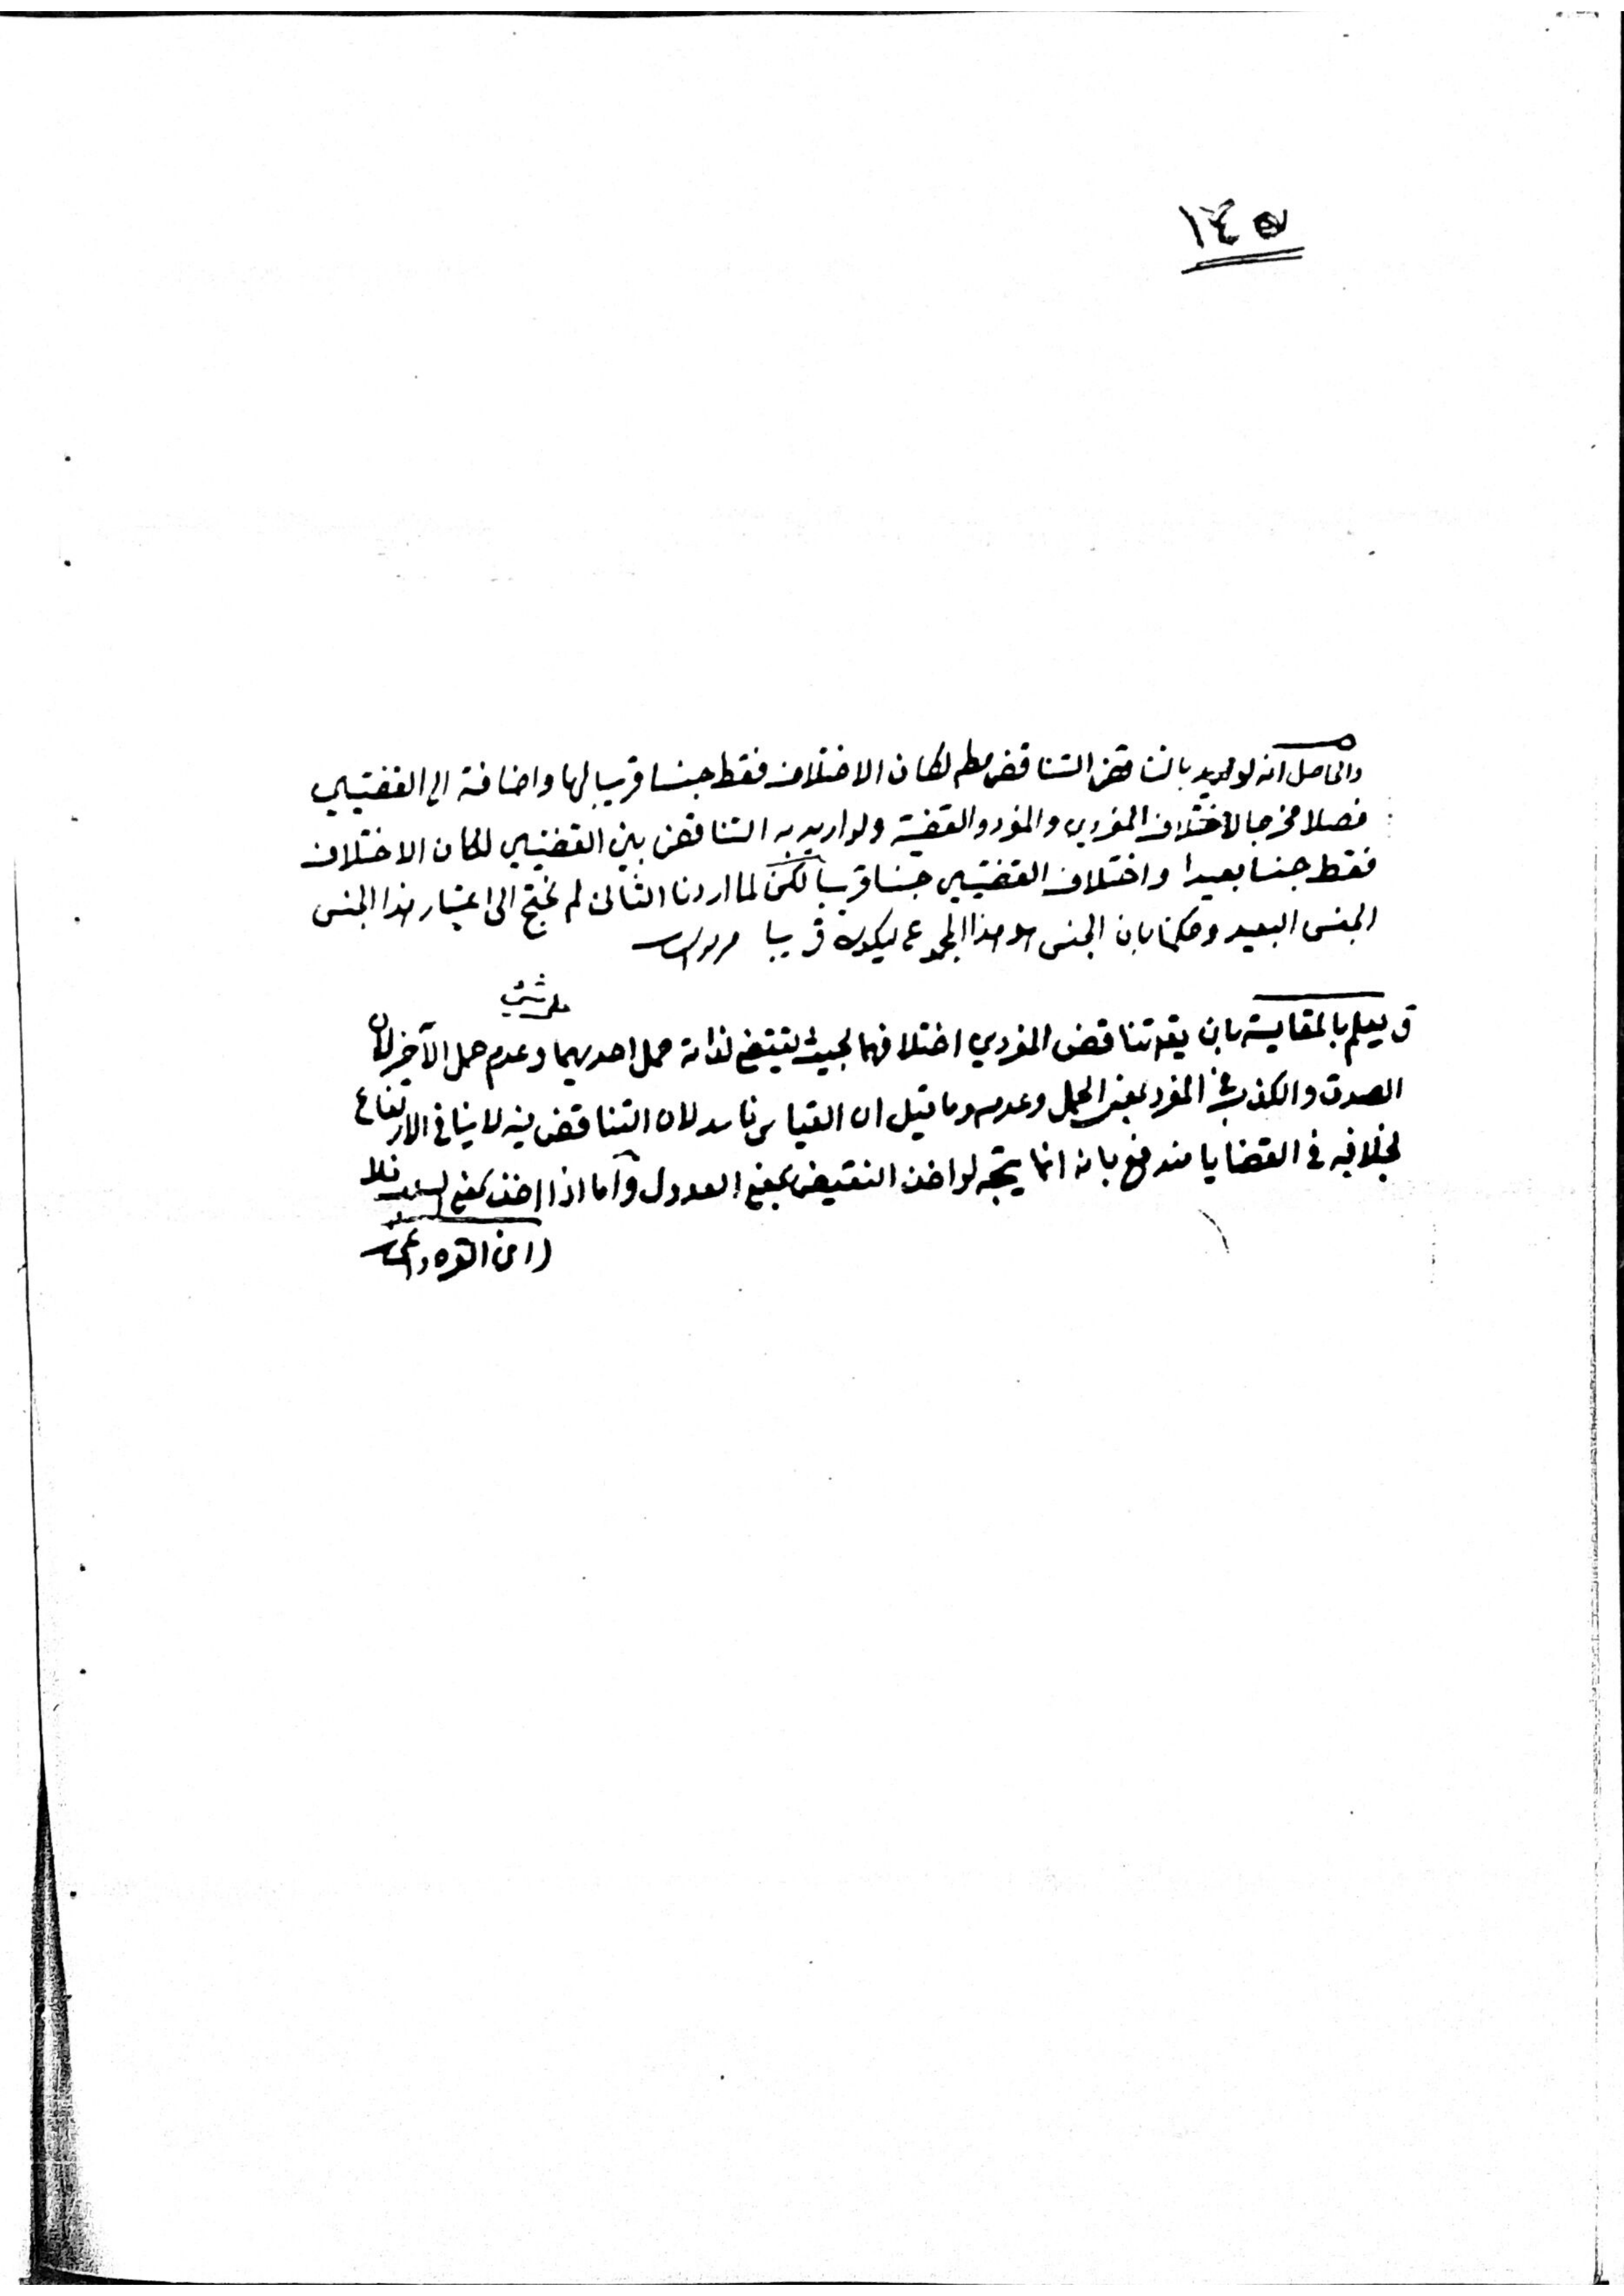 ١٤٥
والحاصل انه لو اريد بالتناقض التناقض مطم لكان الاختلاف فقط جنسا قريبا لها واضافة الى القضيتين
فصلا مخرجا لاختلاف المفردين والمفرد والقضية ولو اريد به التناقض بين القضيتين لكان الاختلاف
فقط جنسا بعيدا واختلاف القضيتين جنسا قريبا لكن لما اردنا الثانى لم نحتج الى اعتبار هذا الجنس
الجنس البعيد وحكمنا بان الجنس هو هذا المجموع ليكون قريبا
على شئ
ق يعلم بالمقايسة بان يقه تناقض المفردين اختلافهما بحيث يقتضى لذاته حمل احديهما وعدم حمل الآخر لان
الصدق والكذب فى المفرد بمعنى الحمل وعدمه وما قيل ان القياس فاسد لان التناقض فيه لا ينافى الارتفاع
بخلافه فى القضايا مندفع بانه انما يتجه لو اخذ النقيض بمعنى العدول واما اذا اخذ بمعنى السلب فلا